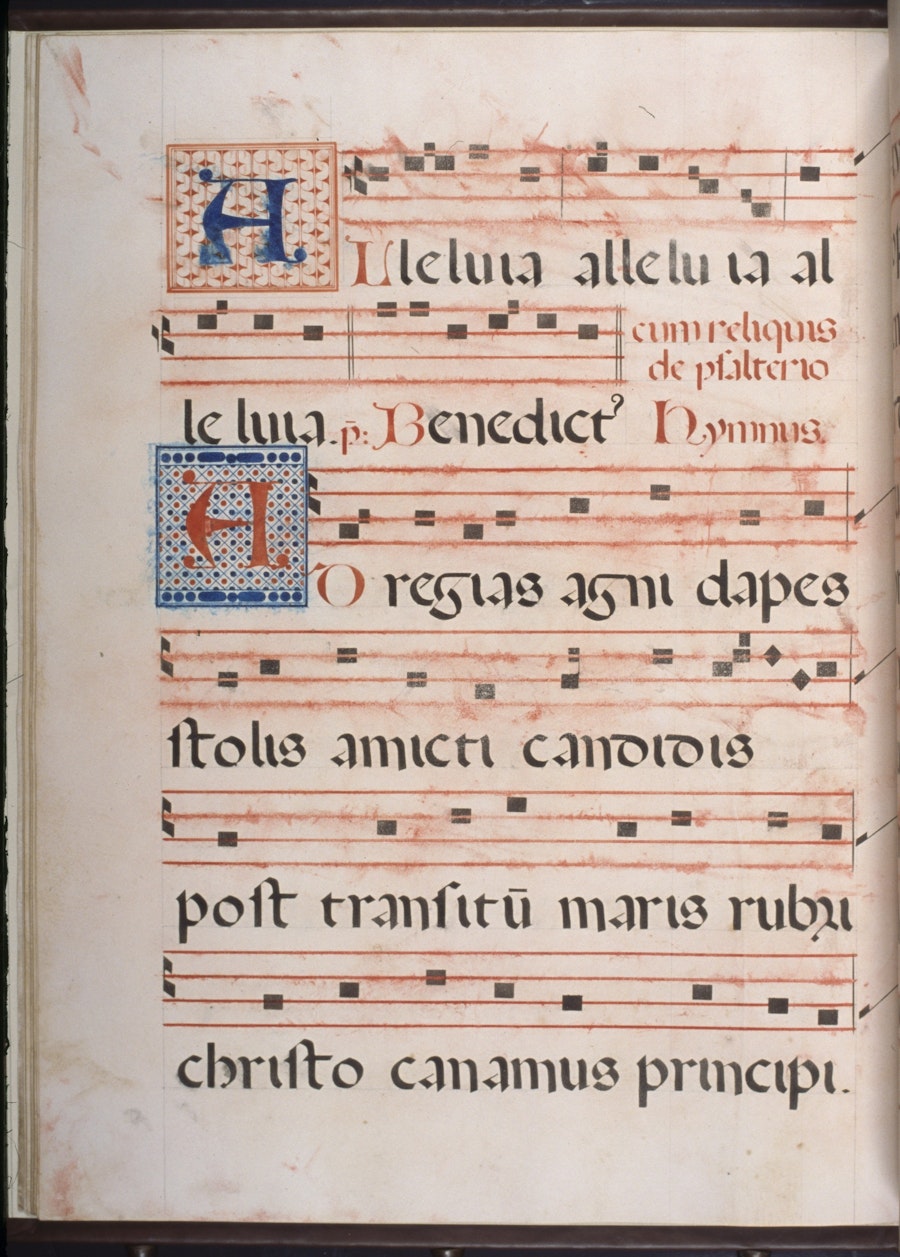 ALleluia allelu ia al
cum reliquis
de psalterio
le luia. p̄: Benedict⁹ Hymnus.
AD regias agni dapes
ſtolis amicti candidis
poſt tranſitū maris rubri
chriſto canamus principi.